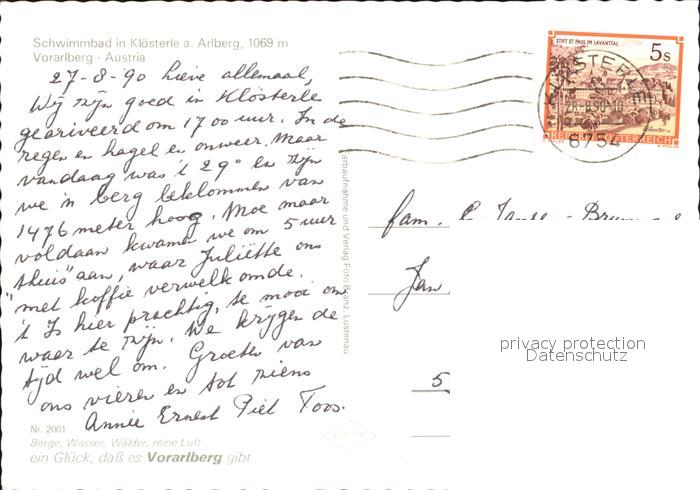 Schwimmbad in Klösterle a. Arlberg, 1069 m
Vorarlberg - Austria
27-8-'90 lieve allemaal,
Wij zijn goed in Klösterle
gearriveerd om 17 00 uur. In de
regen en hagel en onweer. Maar
vandaag was 't 29° en zijn
we 'n berg beklommen van
1476 meter hoog. Moe maar
voldaan kwamen we om 5 uur
"thuis" aan, waar Juliëtte ons
met koffie verwelkomde.
't Is hier prachtig, te mooi om
waar te zijn. We krijgen de
tijd wel om. Groeten van
ons vieren en tot ziens
Annie Ernest Piet Toos.
Nr. 2001
Berge, Wasser, Wälder, reine Luft
ein Glück, daß es Vorarlberg gibt
Farbaufnahme und Verlag Foto Branz, Lustenau
STIFT ST. PAUL IM LAVANTTAL
5s
REPUBLIK ÖSTERREICH
KLÖSTERLE
28.8.90-10
6754
fam.
Jan
5
privacy protection
Datenschutz